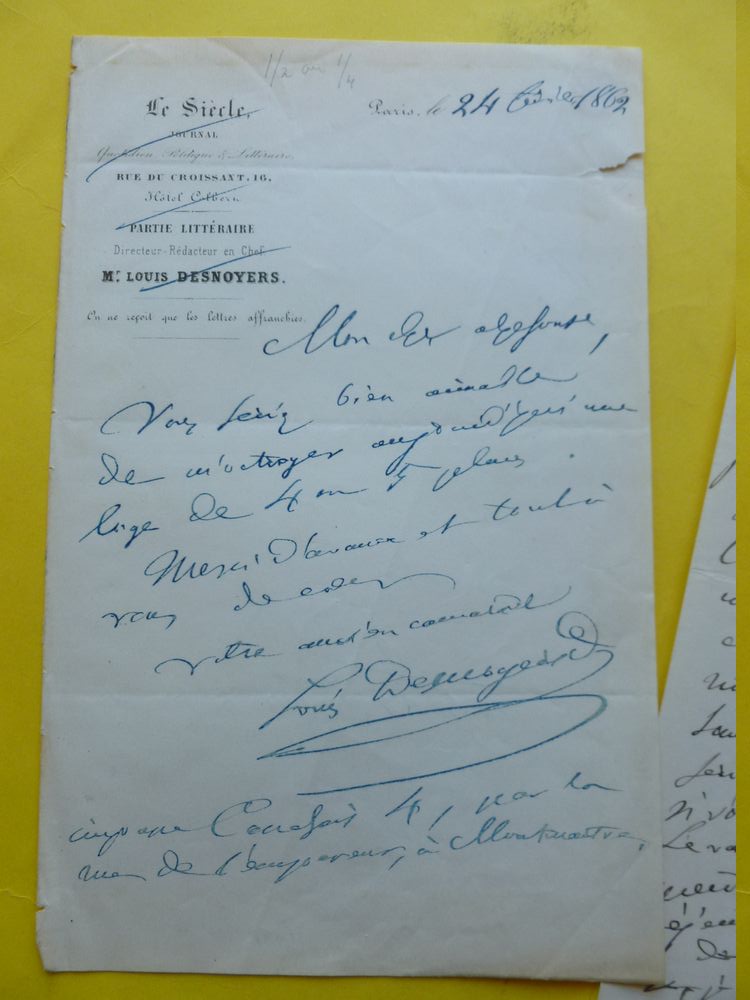 1/2 ou 1/4
Le Siècle,
JOURNAL
Quotidien, Politique & Littéraire.
RUE DU CROISSANT, 16,
Hôtel Colbert.
PARTIE LITTÉRAIRE
Directeur-Rédacteur en Chef.
Mr. LOUIS DESNOYERS.
On ne reçoit que les lettres affranchies.
Paris, le 24 février 1862
Mon cher alphonse,
Vous seriez bien aimable
de m'octroyer aujourd'hui une
loge de 4 ou 5 places.
Merci d'avance et tout à
vous de cœur
votre ancien camarade
Louis Desnoyers
4, par la
rue de l'empereur, à Montmartre,